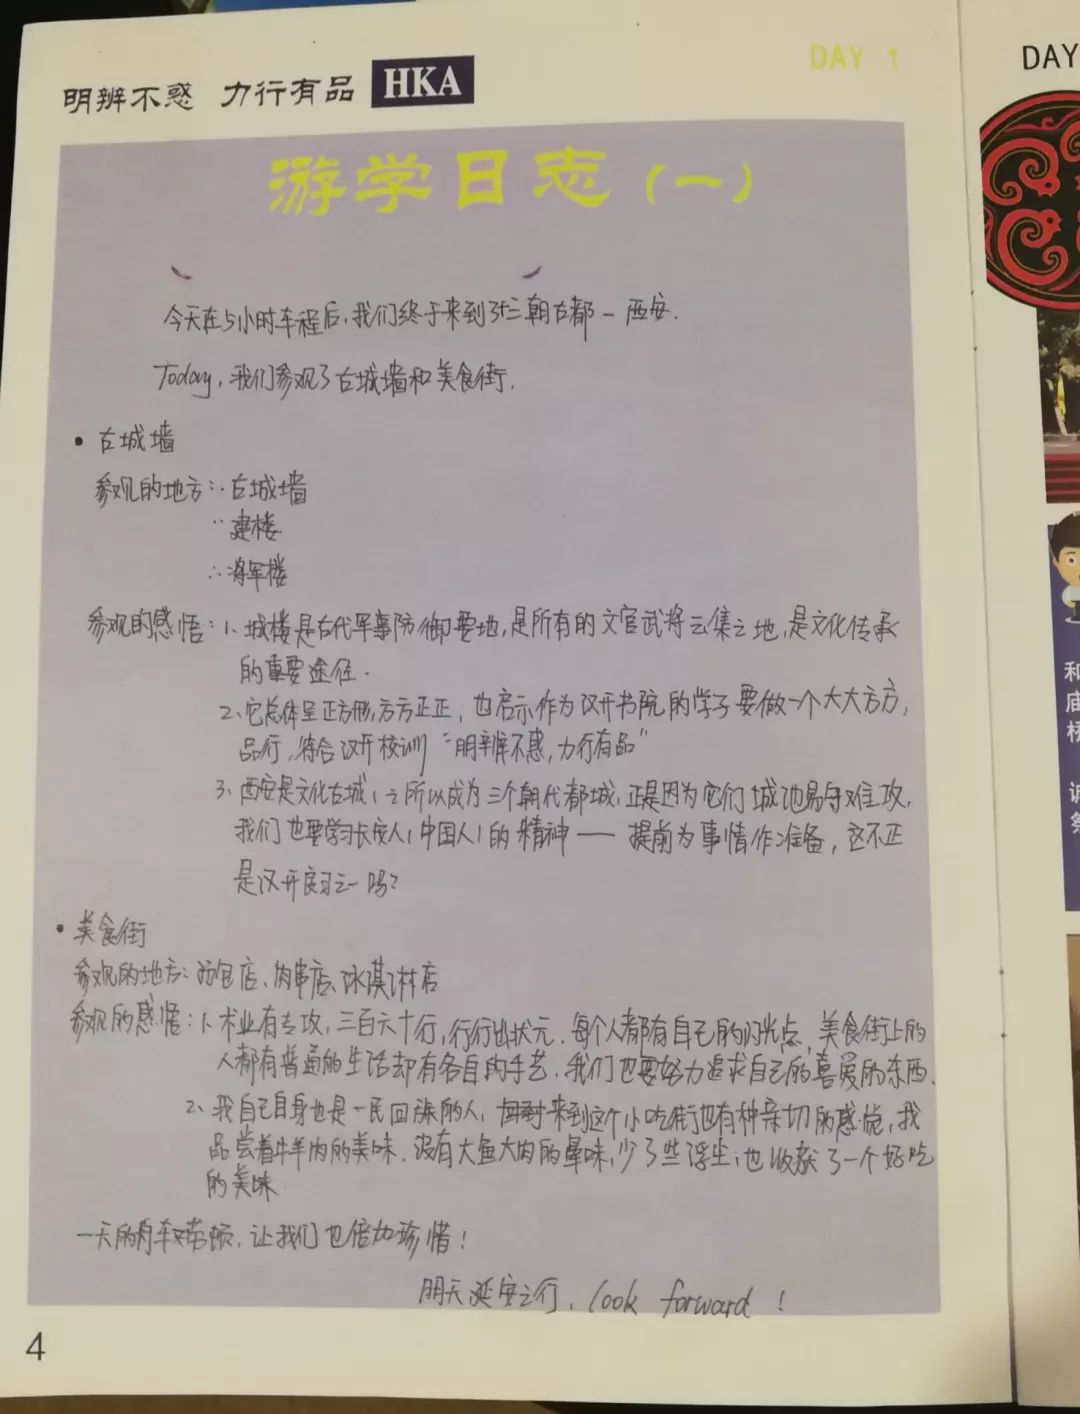 明辨不惑 力行有品 HKA
DAY. 1
游学日志(一)
今天在5小时车程后,我们终于来到了十三朝古都－西安.
Today,我们参观了古城墙和美食街.
• 古城墙
参观的地方:∴古城墙
∵建楼
∴将军楼
参观的感悟:1、城楼是古代军事防御要地,是所有的文官武将云集之地,是文化传承
的重要途径.
2、它总体呈正方形,方方正正,也启示作为汉开书院的学子要做一个大大方方,
品行,符合汉开校训"明辨不惑,力行有品"
3、西安是文化古城,之所以成为三个朝代都城,正是因为它们城池易守难攻,
我们也要学习长安人(中国人)的精神——提前为事情作准备,这不正
是汉开良习之一吗?
• 美食街
参观的地方:店、肉串店、冰淇淋店
参观的感悟:1、术业有专攻,三百六十行,行行出状元.每个人都有自己的闪光点,美食街上的
人都有普通的生活却有各自的手艺.我们也要努力追求自己的喜爱的东西.
2、我自己自身也是一民回族的人,来到这个小吃街也有种亲切的感觉,我
品尝着牛羊肉的美味.没有大鱼大肉的晕味,少了些浮尘,也收获了一个好吃
的美味
一天的舟车劳顿,让我们也倍加珍惜!
明天延安之行,look forward !
4
DAY
和
庙
桥